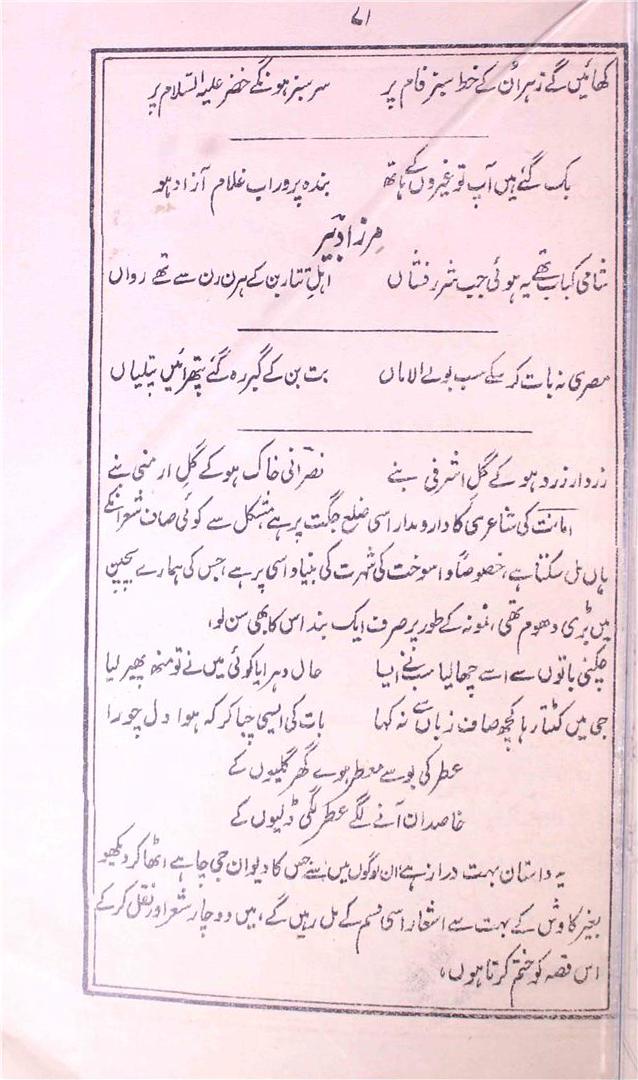 ۷۱
کھائیں گے زہر اُن کے خط سبز فام پر سرسبز ہونگے خضر علیہ السلام پر
بک گئے ہیں آپ تو غیروں کے ہاتھ بندہ پرور اب غلام آزاد ہو
مرزا دبیر
شامی کباب تھے یہ ہوئی جب شرر فشاں اہلِ تتار بن کے ہرن رن سے تھے رواں
مصری نہ بات کر سکے سب بولے الاماں بت بن کے گبر رہ گئے پتھرائیں پتلیاں
زردار زرد ہو کے گلِ اشرفی بنے نصرانی خاک ہو کے گلِ ارمنی بنے
امانت کی شاعری کا دارومدار اسی ضلع جگت پر ہے مشکل سے کوئی صاف شعر انکے
ہاں مل سکتا ہے، خصوصاً واسوخت کی شہرت کی بنیاد اسی پر ہے، جس کی ہمارے بچپن
میں بڑی دھوم تھی، نمونہ کے طور پر صرف ایک بند اس کا بھی سن لو،
چکنی باتوں سے اسے چھالیا سب نے ایسا حال دہرایا کوئی میں نے تو منھ پھیر لیا
جی میں کٹتا رہا کچھ صاف زباں سے نہ کہا بات کی ایسی چبا کر کہ ہوا دل چورا
عطر کی بو سے معطر ہوے گھر گلیوں کے
خاصدان آنے لگے عطر لگی ڈلیوں کے
یہ داستان بہت دراز ہے ان لوگوں میں سے جس کا دیوان جی چاہے اٹھا کر دیکھو
بغیر کاوش کے بہت سے اشعار اسی قسم کے مل رہیں گے، میں دو چار شعر اور نقل کر کے
اس قصہ کو ختم کرتا ہوں،